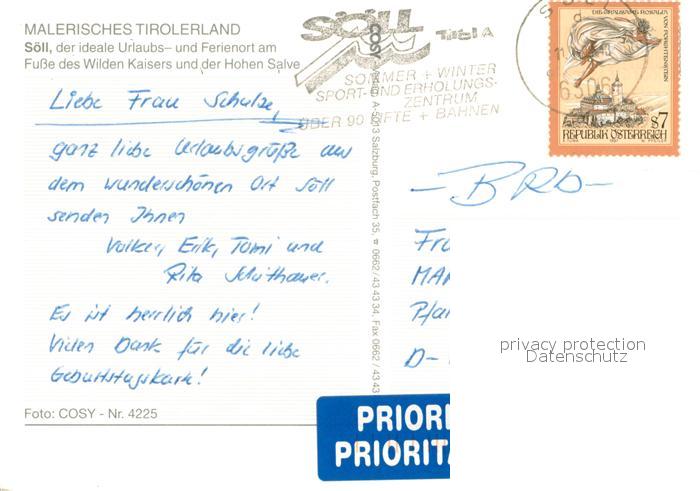 MALERISCHES TIROLERLAND
Söll, der ideale Urlaubs– und Ferienort am
Fuße des Wilden Kaisers und der Hohen Salve
Liebe Frau Schulze,
ganz liebe Urlaubsgrüße aus
dem wunderschönen Ort Söll
senden Ihnen
Volker, Erik, Tomi und
Rita
Es ist herrlich hier!
Vielen Dank für die liebe
Geburtstagskarte!
Foto: COSY - Nr. 4225
COSY
A-5013 Salzburg, Postfach 35, ☎ 0662/43 43 34, Fax 0662 / 43 43
SÖLL
Tirol A
SOMMER + WINTER
SPORT- UND ERHOLUNGS-
ZENTRUM
ÜBER 90 LIFTE + BAHNEN
6306
VON FORCHTENSTEIN
s7
REPUBLIK ÖSTERREICH
– BRD –
Fra
MA
Pfa
D-
privacy protection
Datenschutz
PRIORI
PRIORITA